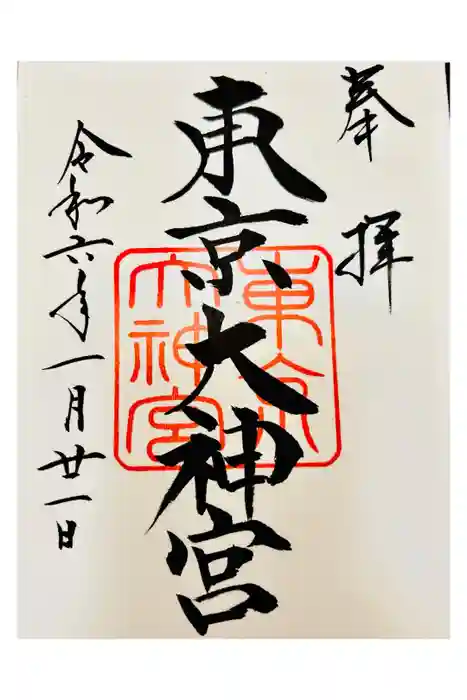 奉拝
東京大神宮
東京
大神宮
令和六年一月廿一日